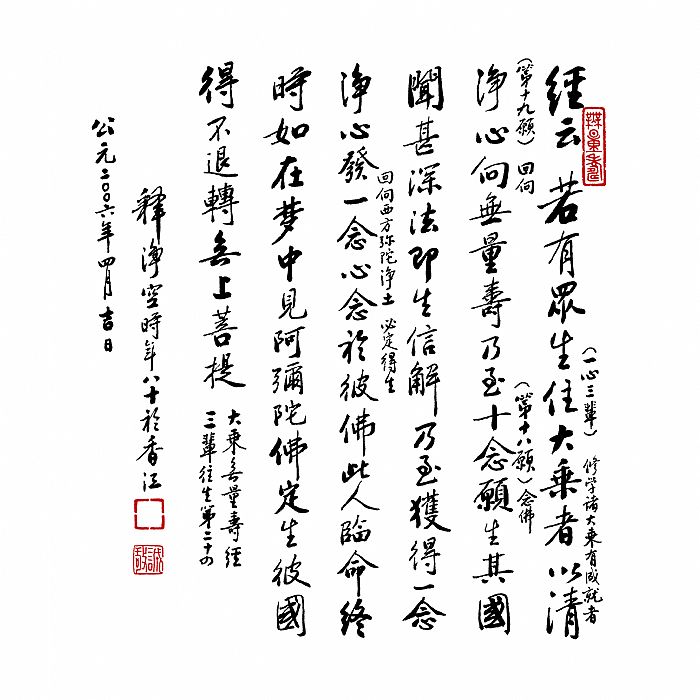 經云 若有眾生住大乘者以清
（一心三輩） 修学諸大乘有成就者
（第十九願）回向 （第十八願）念佛
淨心向無量壽乃至十念願生其國
聞甚深法即生信解乃至獲得一念
回向西方弥陀淨土 必定得生
淨心發一念心念於彼佛此人臨命終
時如在梦中見阿彌陀佛定生彼國
得不退轉無上菩提
大乘無量壽經
三輩往生第二十四
釋淨空時年八十於香江
公元二〇〇六年四月吉日